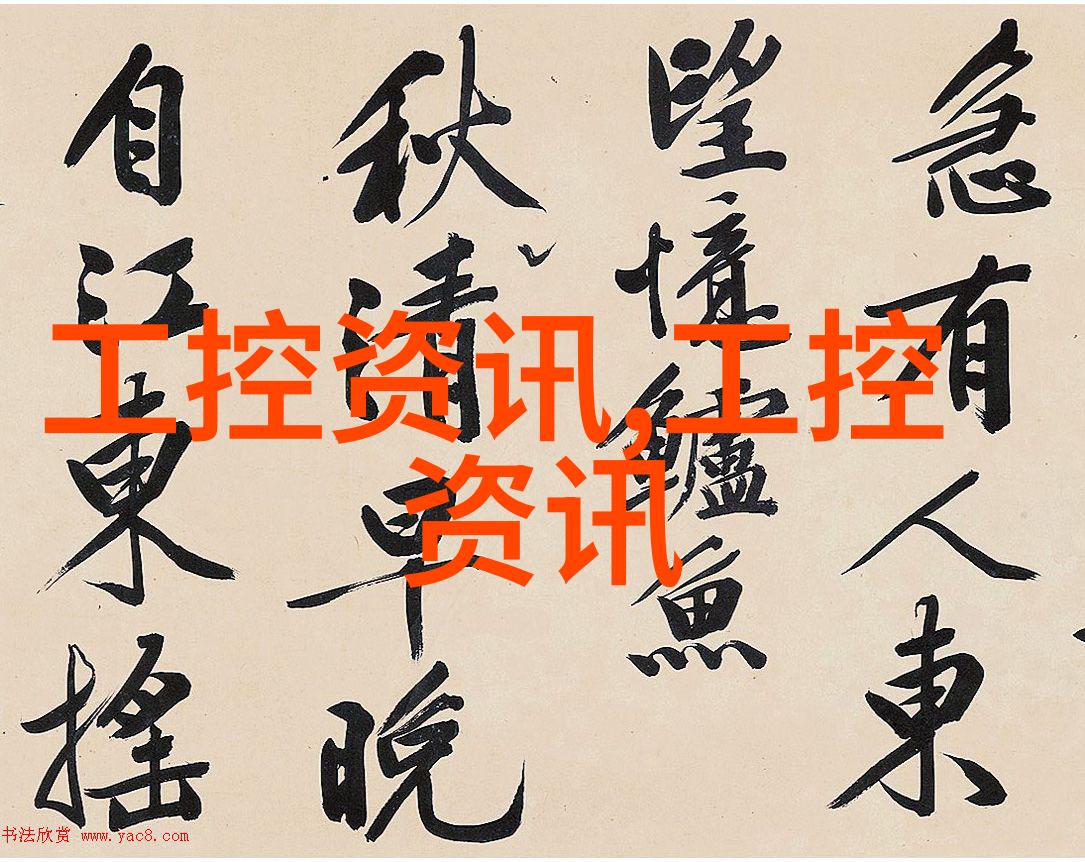 急有人東
望憶鱸魚
秋清早晚
自江東搖
工控资讯,工控
资讯
书法欣赏 www.yac8.com